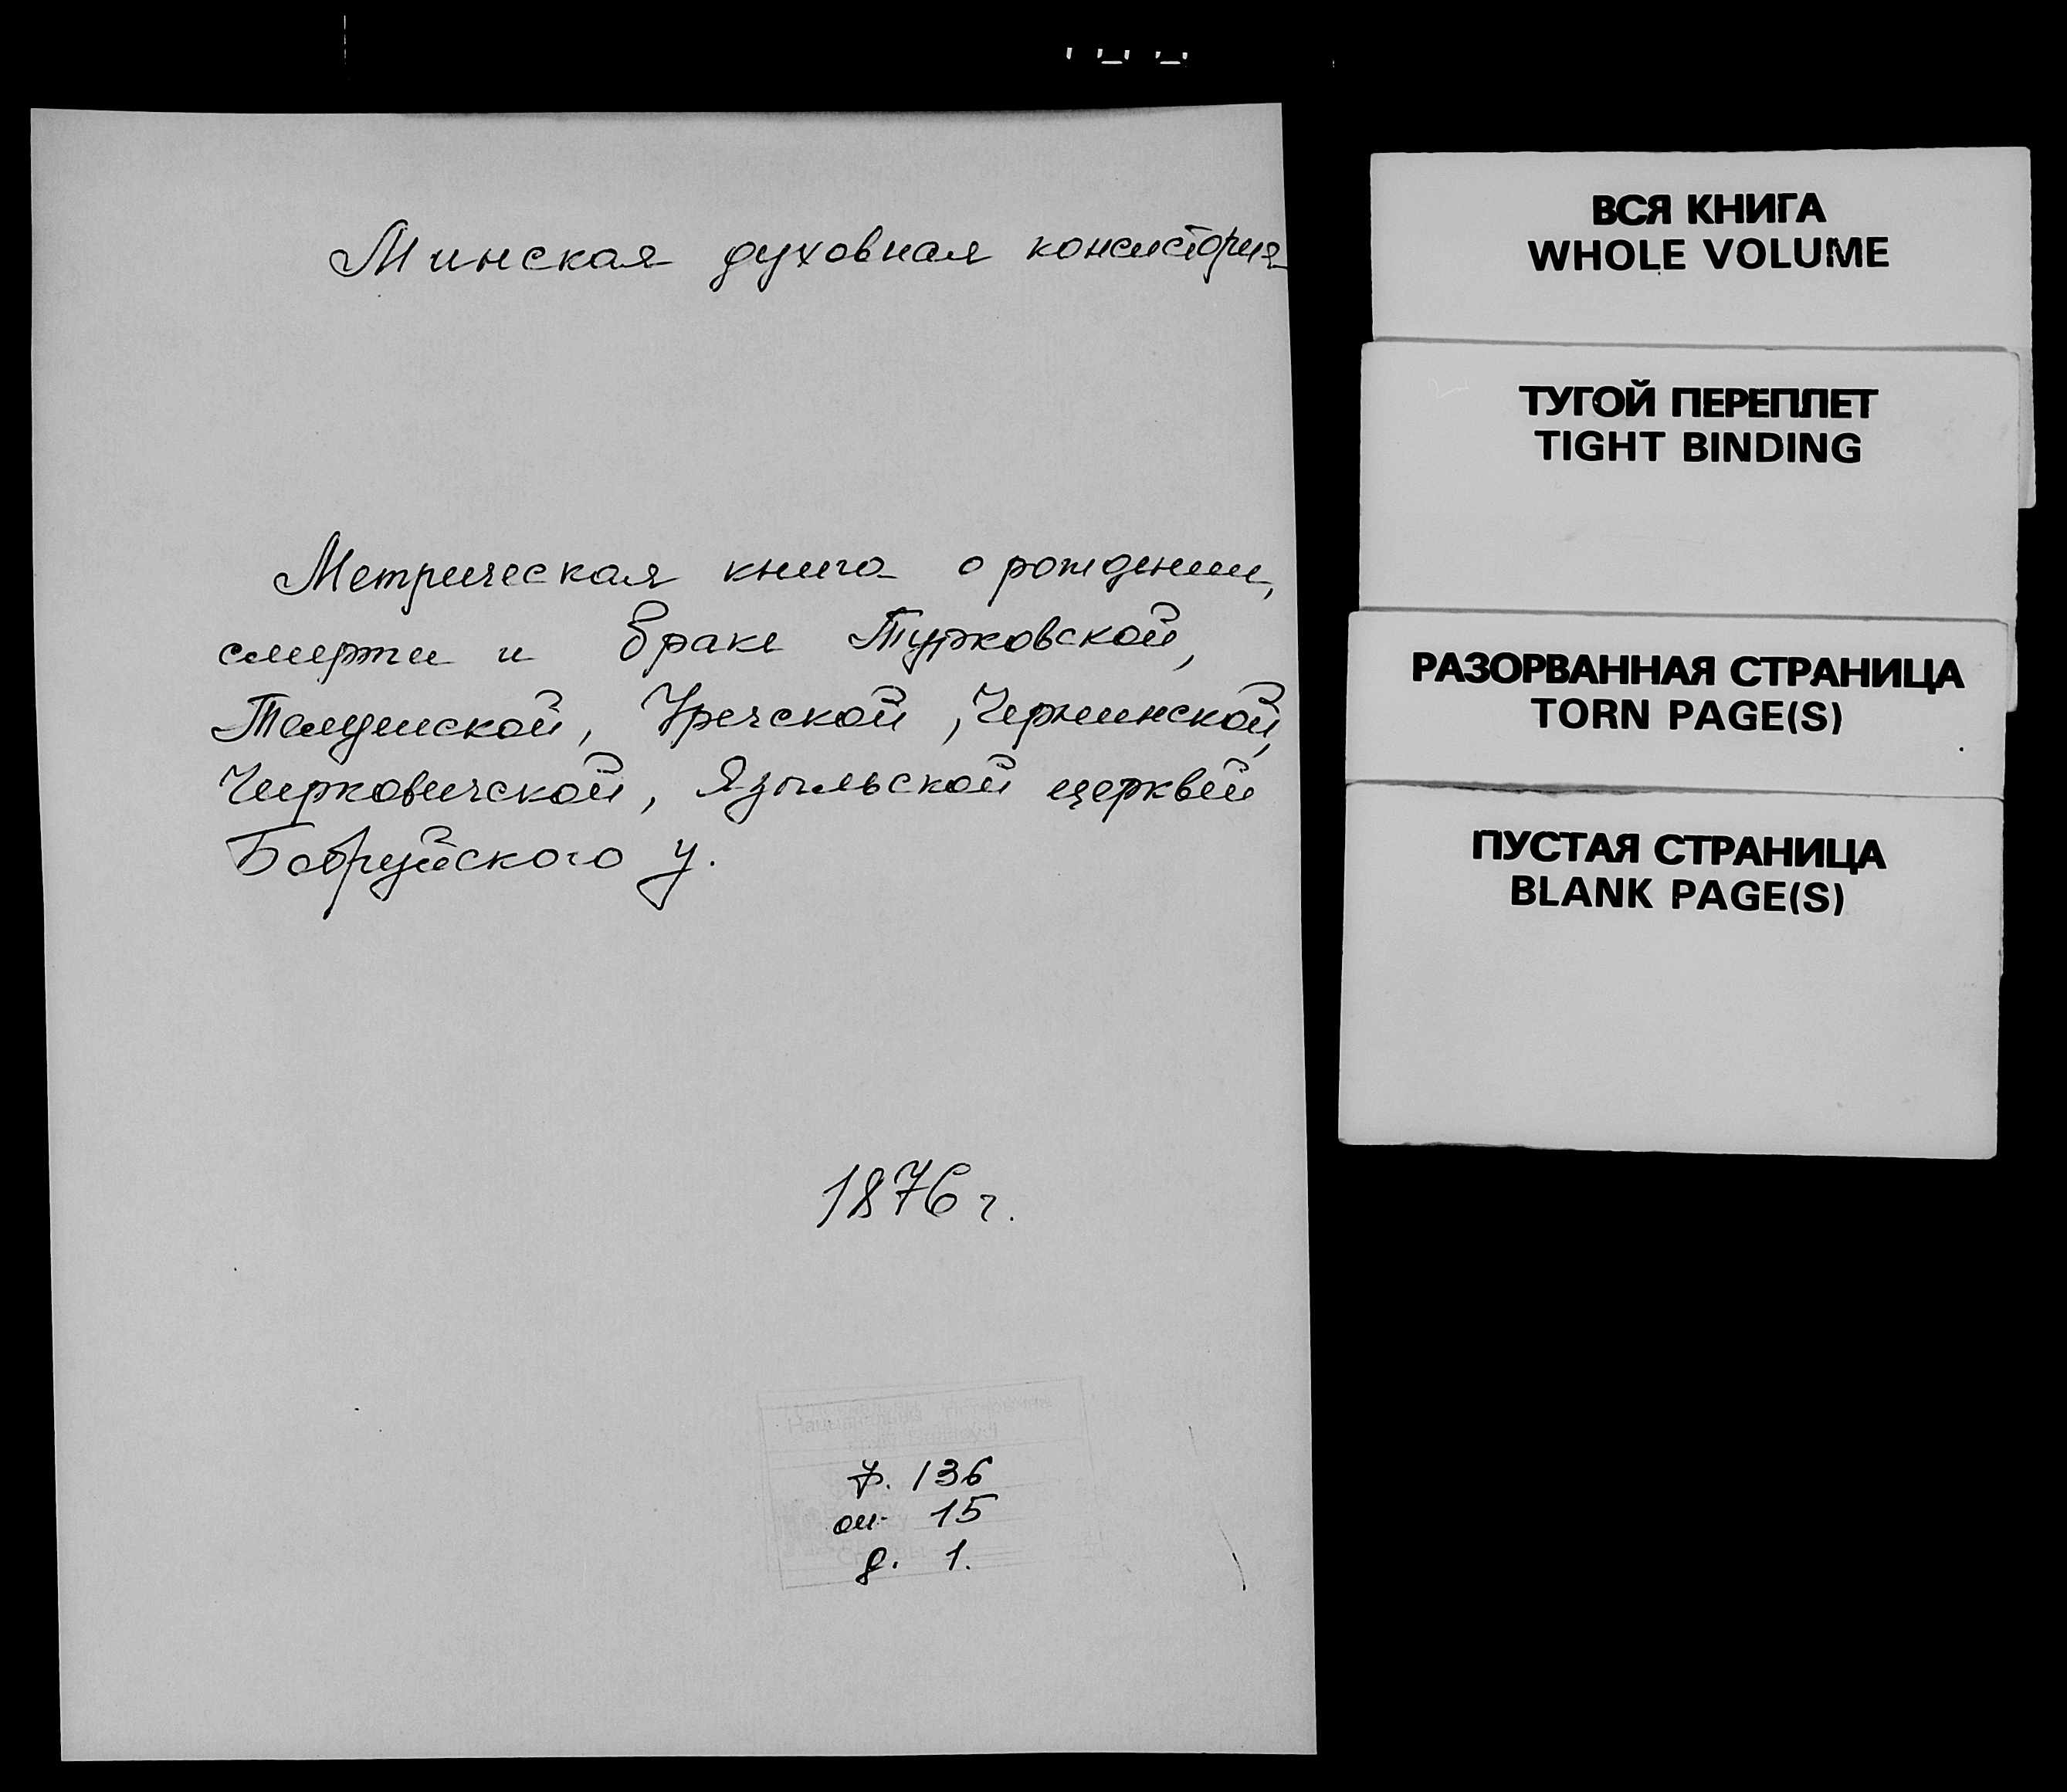 Минская духовная консистория
Метрическая книга о рождении,
смерти и браке Турковской,
Телушской, Уречской, Чернинской,
Чирковичской, Языльской церквей
Бобруйского у.
1876 г.
ф. 136
оп. 15
д. 1.
ВСЯ КНИГА
WHOLE VOLUME
ТУГОЙ ПЕРЕПЛЕТ
TIGHT BINDING
РАЗОРВАННАЯ СТРАНИЦА
TORN PAGE(S)
ПУСТАЯ СТРАНИЦА
BLANK PAGE(S)